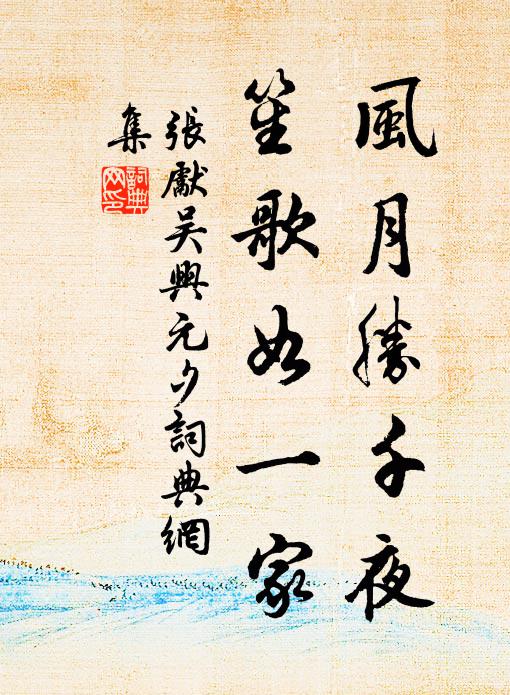 風月勝千夜
笙歌如一家
張獻吴興元夕詞典網
集
詞典
网印